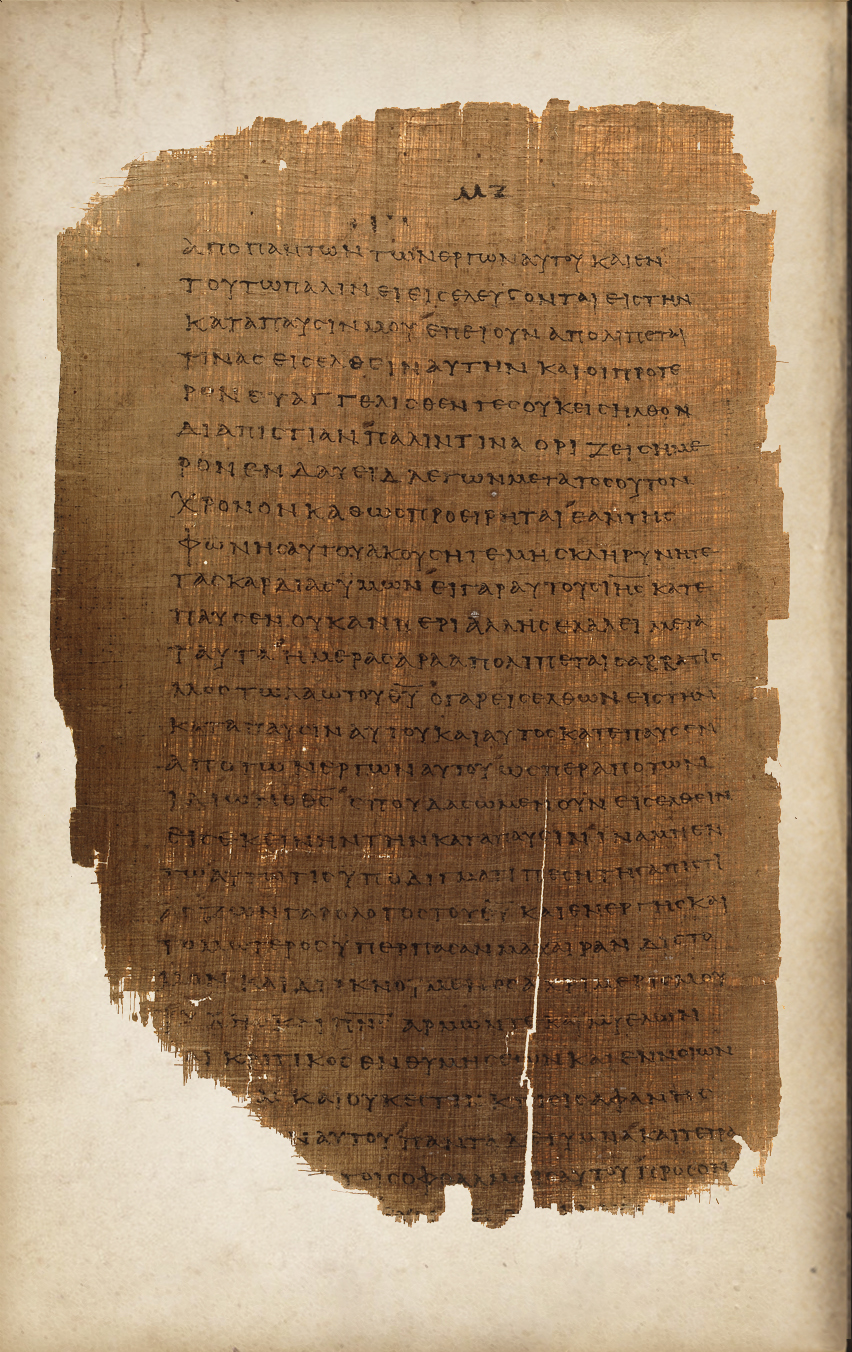 ΜΖ
ΑΠΟ ΠΑΝΤΩΝ ΤΩΝ ΕΡΓΩΝ ΑΥΤΟΥ ΚΑΙ ΕΝ
ΤΟΥΤΩ ΠΑΛΙΝ ΕΙ ΕΙCΕΛΕΥCΟΝΤΑΙ ΕΙC ΤΗΝ
ΚΑΤΑΠΑΥCΙΝ ΜΟΥ ΕΠΕΙ ΟΥΝ ΑΠΟΛΙΠΕΤΑΙ
ΤΙΝΑC ΕΙCΕΛΘΕΙΝ ΑΥΤΗΝ ΚΑΙ ΟΙ ΠΡΟΤΕ
ΡΟΝ ΕΥΑΓΓΕΛΙCΘΕΝΤΕC ΟΥΚ ΕΙCΗΛΘΟΝ
ΔΙ ΑΠΙCΤΙΑΝ ΠΑΛΙΝ ΤΙΝΑ ΟΡΙΖΕΙ CΗΜΕ
ΡΟΝ ΕΝ ΔΑΥΕΙΔ ΛΕΓΩΝ ΜΕΤΑ ΤΟCΟΥΤΟΝ
ΧΡΟΝΟΝ ΚΑΘΩC ΠΡΟΕΙΡΗΤΑΙ ΕΑΝ ΤΗC
ΦΩΝΗC ΑΥΤΟΥ ΑΚΟΥCΗΤΕ ΜΗ CΚΛΗΡΥΝΗΤΕ
ΤΑC ΚΑΡΔΙΑC ΥΜΩΝ ΕΙ ΓΑΡ ΑΥΤΟΥC ΙΗC ΚΑΤΕ
ΠΑΥCΕΝ ΟΥΚ ΑΝ ΠΕΡΙ ΑΛΛΗC ΕΛΑΛΕΙ ΜΕΤΑ
ΤΑΥΤΑ ΗΜΕΡΑC ΑΡΑ ΑΠΟΛΙΠΕΤΑΙ CΑΒΒΑΤΙC
ΜΟC ΤΩ ΛΑΩ ΤΟΥ ΘΥ Ο ΓΑΡ ΕΙCΕΛΘΩΝ ΕΙC ΤΗΝ
ΚΑΤΑΠΑΥCΙΝ ΑΥΤΟΥ ΚΑΙ ΑΥΤΟC ΚΑΤΕΠΑΥCΕΝ
ΑΠΟ ΤΩΝ ΕΡΓΩΝ ΑΥΤΟΥ ΩCΠΕΡ ΑΠΟ ΤΩΝ
ΙΔΙΩΝ Ο ΘC CΠΟΥΔΑCΩΜΕΝ ΟΥΝ ΕΙCΕΛΘΕΙΝ
ΕΙC ΕΚΕΙΝΗΝ ΤΗΝ ΚΑΤΑΠΑΥCΙΝ ΙΝΑ ΜΗ ΕΝ
ΤΙC ΥΠΟΔΙΓΜΑΤΙ ΠΕCΗ ΤΗC ΑΠΙCΤΙ
ΓΑΡ Ο ΛΟΓΟC ΤΟΥ ΘΥ ΚΑΙ ΕΝΕΡΓΗC ΚΑΙ
ΤΟΜΩΤΕΡΟC ΥΠΕΡ ΠΑCΑΝ ΜΑΧΑΙΡΑΝ ΔΙCΤΟ
ΜΟΝ ΚΑΙ ΔΙΙΚΝΟΥΜΕΝΟC ΑΧΡΙ ΜΕΡΙCΜΟΥ
ΚΑΙ ΠΝC ΑΡΜΩΝ ΤΕ ΚΑΙ ΜΥΕΛΩΝ
ΚΑΙ ΚΡΙΤΙΚΟC ΕΝΘΥΜΗCΕΩΝ ΚΑΙ ΕΝΝΟΙΩΝ
ΚΑΙ ΟΥΚ ΕCΤΙΝ ΚΤΙCΙC ΑΦΑΝΗC
ΑΥΤΟΥ ΠΑΝΤΑ ΔΕ ΓΥΜΝΑ ΚΑΙ ΤΕΤΡΑ
ΤΟΙC ΟΦΘΑΛΜΟΙC ΑΥΤΟΥ ΠΡΟC ΟΝ